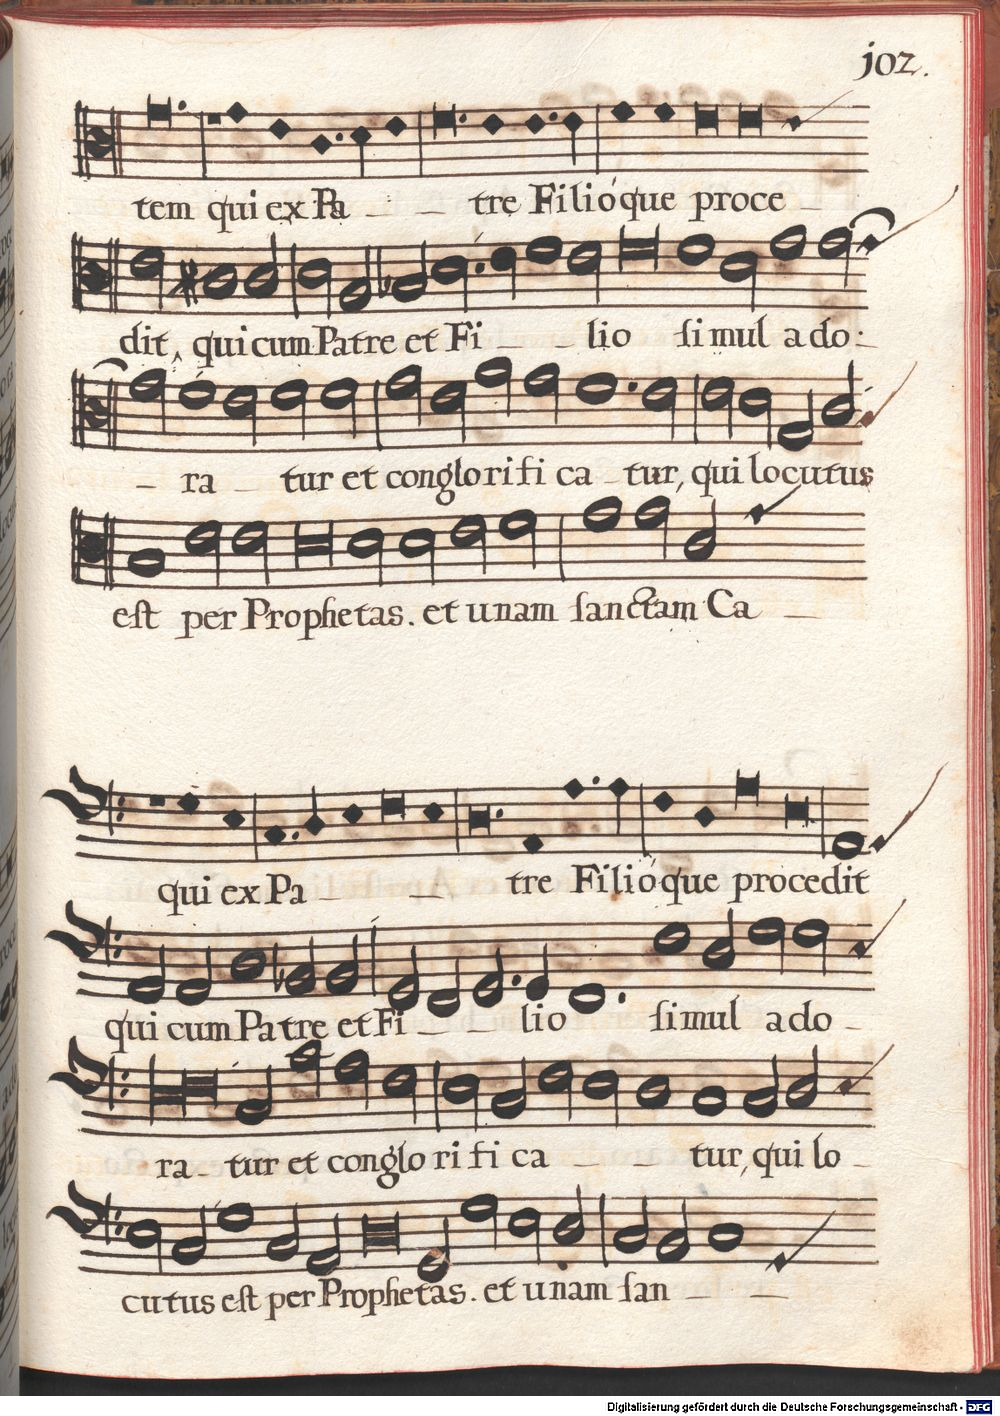 102.
tem qui ex Pa - - tre Filióque proce
dit, qui cum Patre et Fi - - lio simul ado:
- ra - tur et conglorifi ca - tur, qui locutus
est per Prophetas. et unam sanctam Ca -
qui ex Pa - - tre Filióque procedit
qui cum Patre et Fi - - lio simul ado -
ra - tur et conglorifi ca - - tur, qui lo -
cutus est per Prophetas. et unam san - -
Digitalisierung gefördert durch die Deutsche Forschungsgemeinschaft - DFG